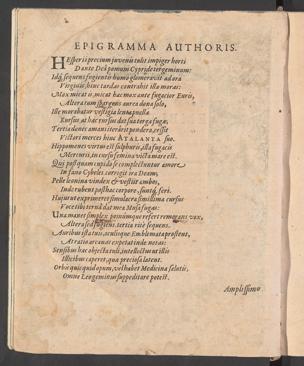 EPIGRAMMA AUTHORIS.
HEsperii precium juvenis tulit impiger horti
Dante Deâ pomum Cypride tergeminum:
Idq; sequens fugientis humo glomeravit ad ora
Virginis, hinc tardas contrahit illa moras:
Mox micat is, micat hac mox ante fugacior Euris,
Altera tum spargens aurea dona solo,
Ille morabatur vestigia lenta puellæ
Rursus, at hæc rursus dat sua terga fugæ.
Tertia donec amans iteravit pondera, cessit
Victori merces hinc ATALANTA suo.
Hippomenes virtus est sulphuris, illa fugacis
Mercurii, in cursu femina victa mare est.
Qui postquam cupido se complectuntur amore
In fano Cybeles corripit ira Deam,
Pelle leonina vindex & vestiit ambos,
In de rubent posthac corpore, suntq; feri.
Hujus ut exprimeret simulacra simillima cursus
Voce tibi ternâ dat mea Musa fugas:
Una manet simplex pomúmque refert remorans vox,
Altera sed fugiens, tertia ritè sequens.
Auribus ista tuis, oculisque Emblemata prostent,
At ratio arcanas expetat inde notas:
Sensibus hæc objecta tuli, intellectus ut illis
Illicibus caperet, quæ preciosa latent.
Orbis quicquid opum, vel habet Medicina salutis,
Omne Leo geminus suppeditare potest.
Amplissimo